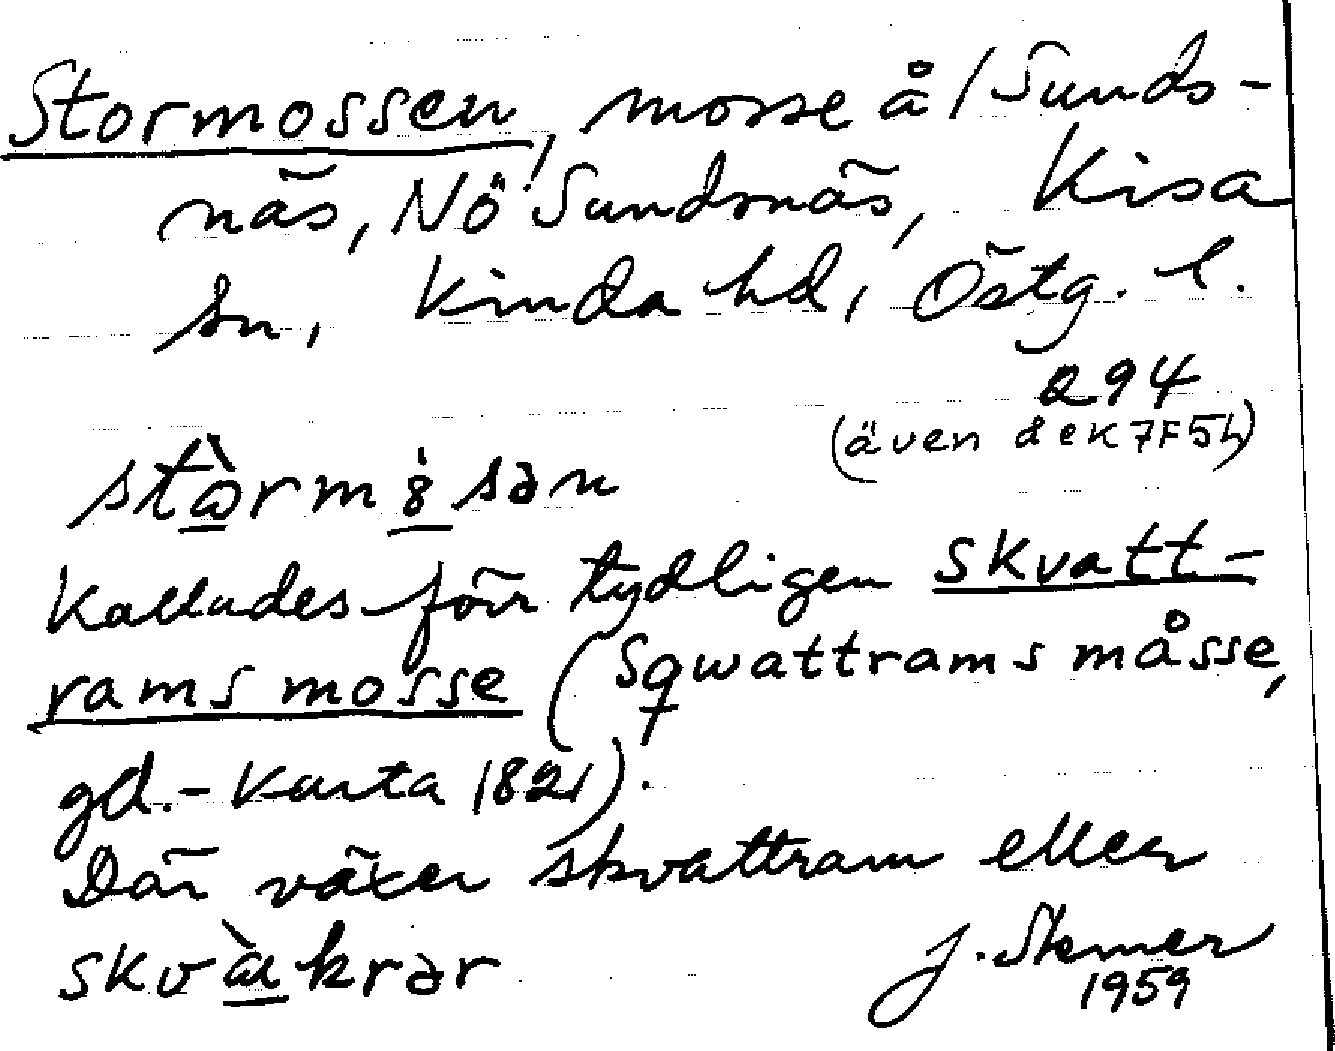 Stormossen, mosse å / Sunds-
näs, NÖ Sundsnäs, Kisa
sn, Kinda hd, Östg. l.
294
(även å ek 7F5h)
stɷ̀rmȣ̀sən
Kallades förr tydligen Skvatt-
ramsmosse (Sqwattrams måsse,
gd.-karta 1821).
Där växer skvattram eller
skvàkrər
J. Stemer
1959